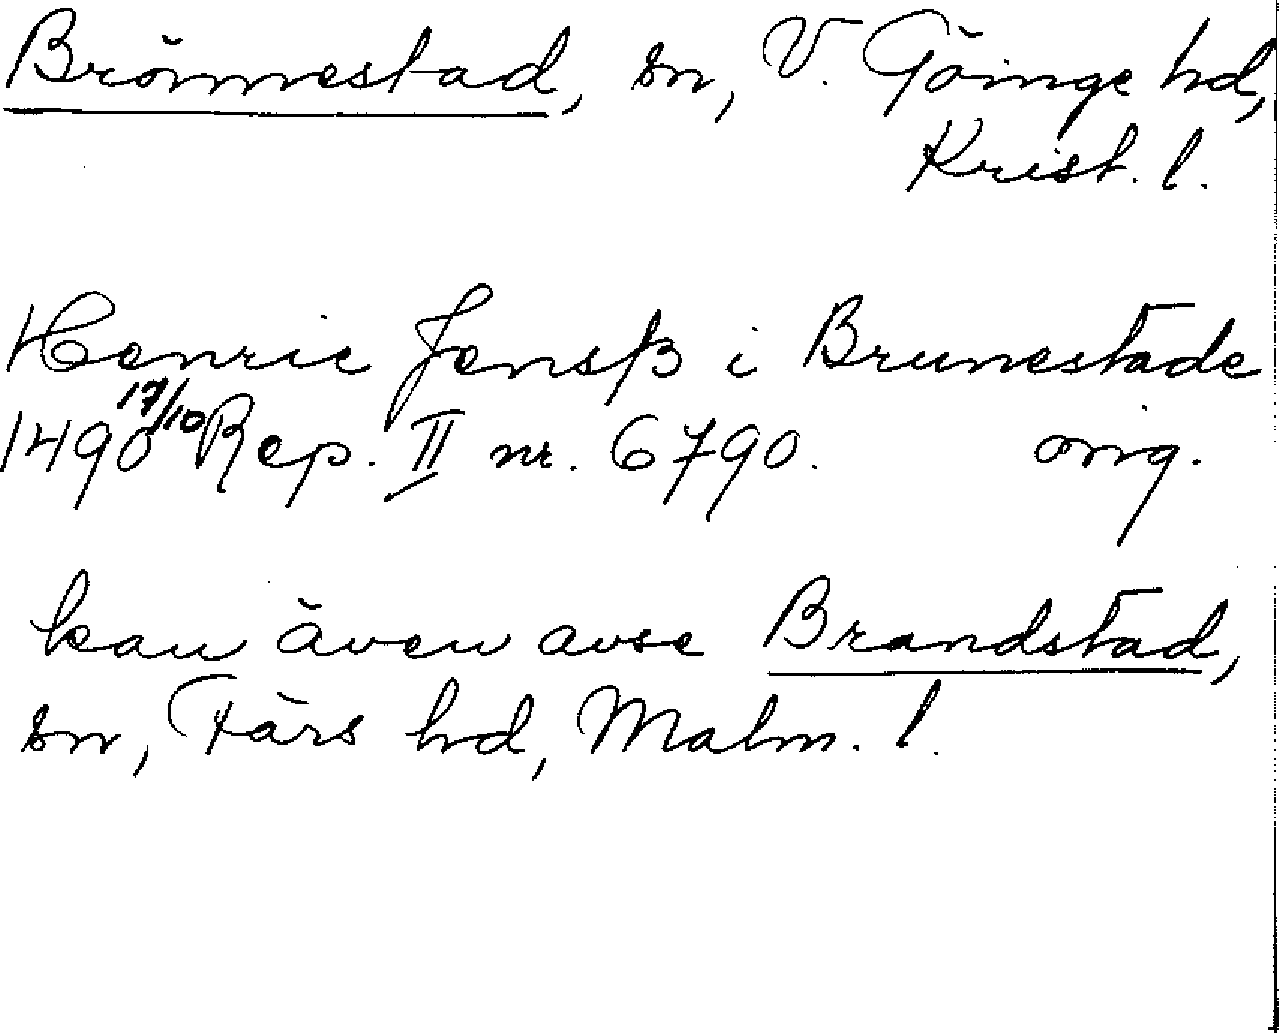 Brönnestad, sn, V. Göinge hd,
Krist. l.
Henric Jensß i Brunestade
1490 17/10 Rep. II nr. 6790. orig.
kan även avse Brandstad,
sn, Färs hd, Malm. l.